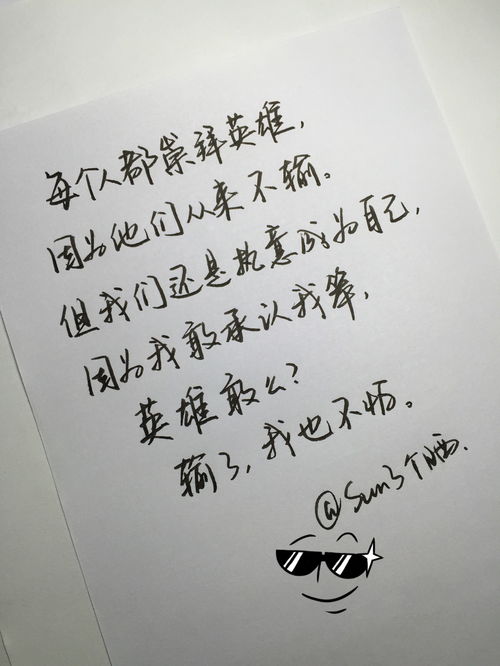 每个人都崇拜英雄，
因为他们从来不输。
但我们还是执意成为自己，
因为我敢承认我笨，
英雄敢么？
输了，我也不怕。
@Sun了个晒.